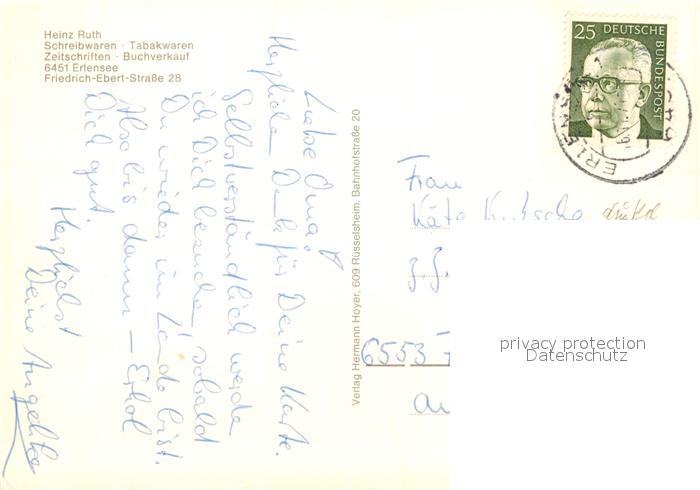 Heinz Ruth
Schreibwaren · Tabakwaren
Zeitschriften · Buchverkauf
6451 Erlensee
Friedrich-Ebert-Straße 28
Liebe Oma!
Herzlichen Dank für Deine Karte.
Selbstverständlich werde
ich Dich besuchen sobald
Du wieder im Lande bist.
Also bis dann – Erhol
Dich gut
Herzlichst
Deine Angelika
Verlag Hermann Hoyer, 609 Rüsselsheim, Bahnhofstraße 20
25 DEUTSCHE
BUNDESPOST
Frau
Käte
z.Z.
6553
privacy protection
Datenschutz